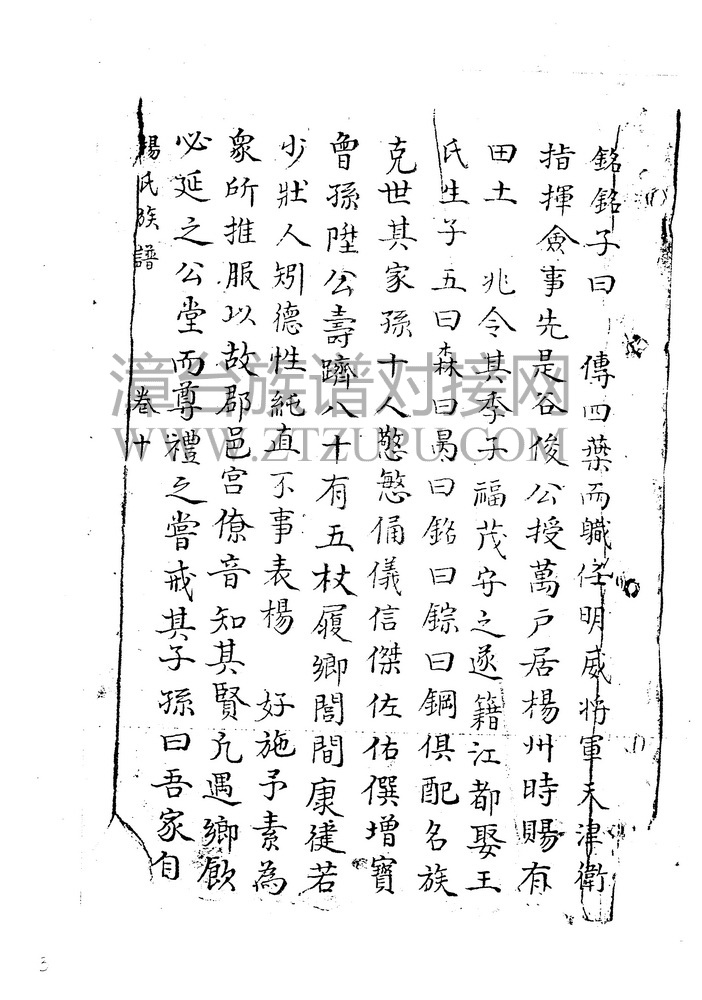 銘銘子曰 傳四葉而職任明威将軍天津衛
指揮僉事先是谷俊公授萬戶居楊州時賜有
田土 兆令其季子福茂守之遂籍江都娶王
氏生子五曰森曰勗曰銘曰錝曰鋼俱配名族
克世其家孫十人慜慜俑儀信傑佐佑僎增寶
曾孫陞公壽躋八十有五杖履鄉閭間康健若
少壯人矧德性純直不事表楊 好施予素為
衆所推服以故郡邑宫僚音知其賢凢遇鄉飲
必延之公堂而尊禮之嘗戒其子孫曰吾家自
楊氏族譜 卷十
漳台族谱对接网
WWW.ZTZUPU.COM
3